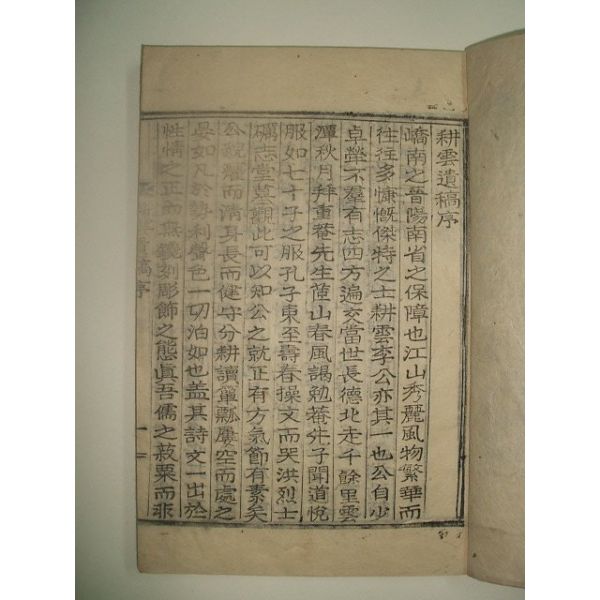 耕雲遺稿序
嶠南之晉陽南省之保障也江山秀麗風物繁華而
往往多慷慨傑特之士耕雲李公亦其一也公自少
卓犖不羣有志四方遍交當世長德北走千餘里雲
潭秋月拜重菴先生蘆山春風謁勉菴先子聞道悅
服如七十子之服孔子東至壽春操文而哭洪烈士
礪志堂墓觀此可以知公之就正有方氣節有素矣
公貌癯而淸身長而健守分耕讀簞瓢屢空而處之
晏如凡於勢利聲色一切泊如也盖其詩文一出於
性情之正而無鐫刻彫飾之態眞吾儒之菽粟而非